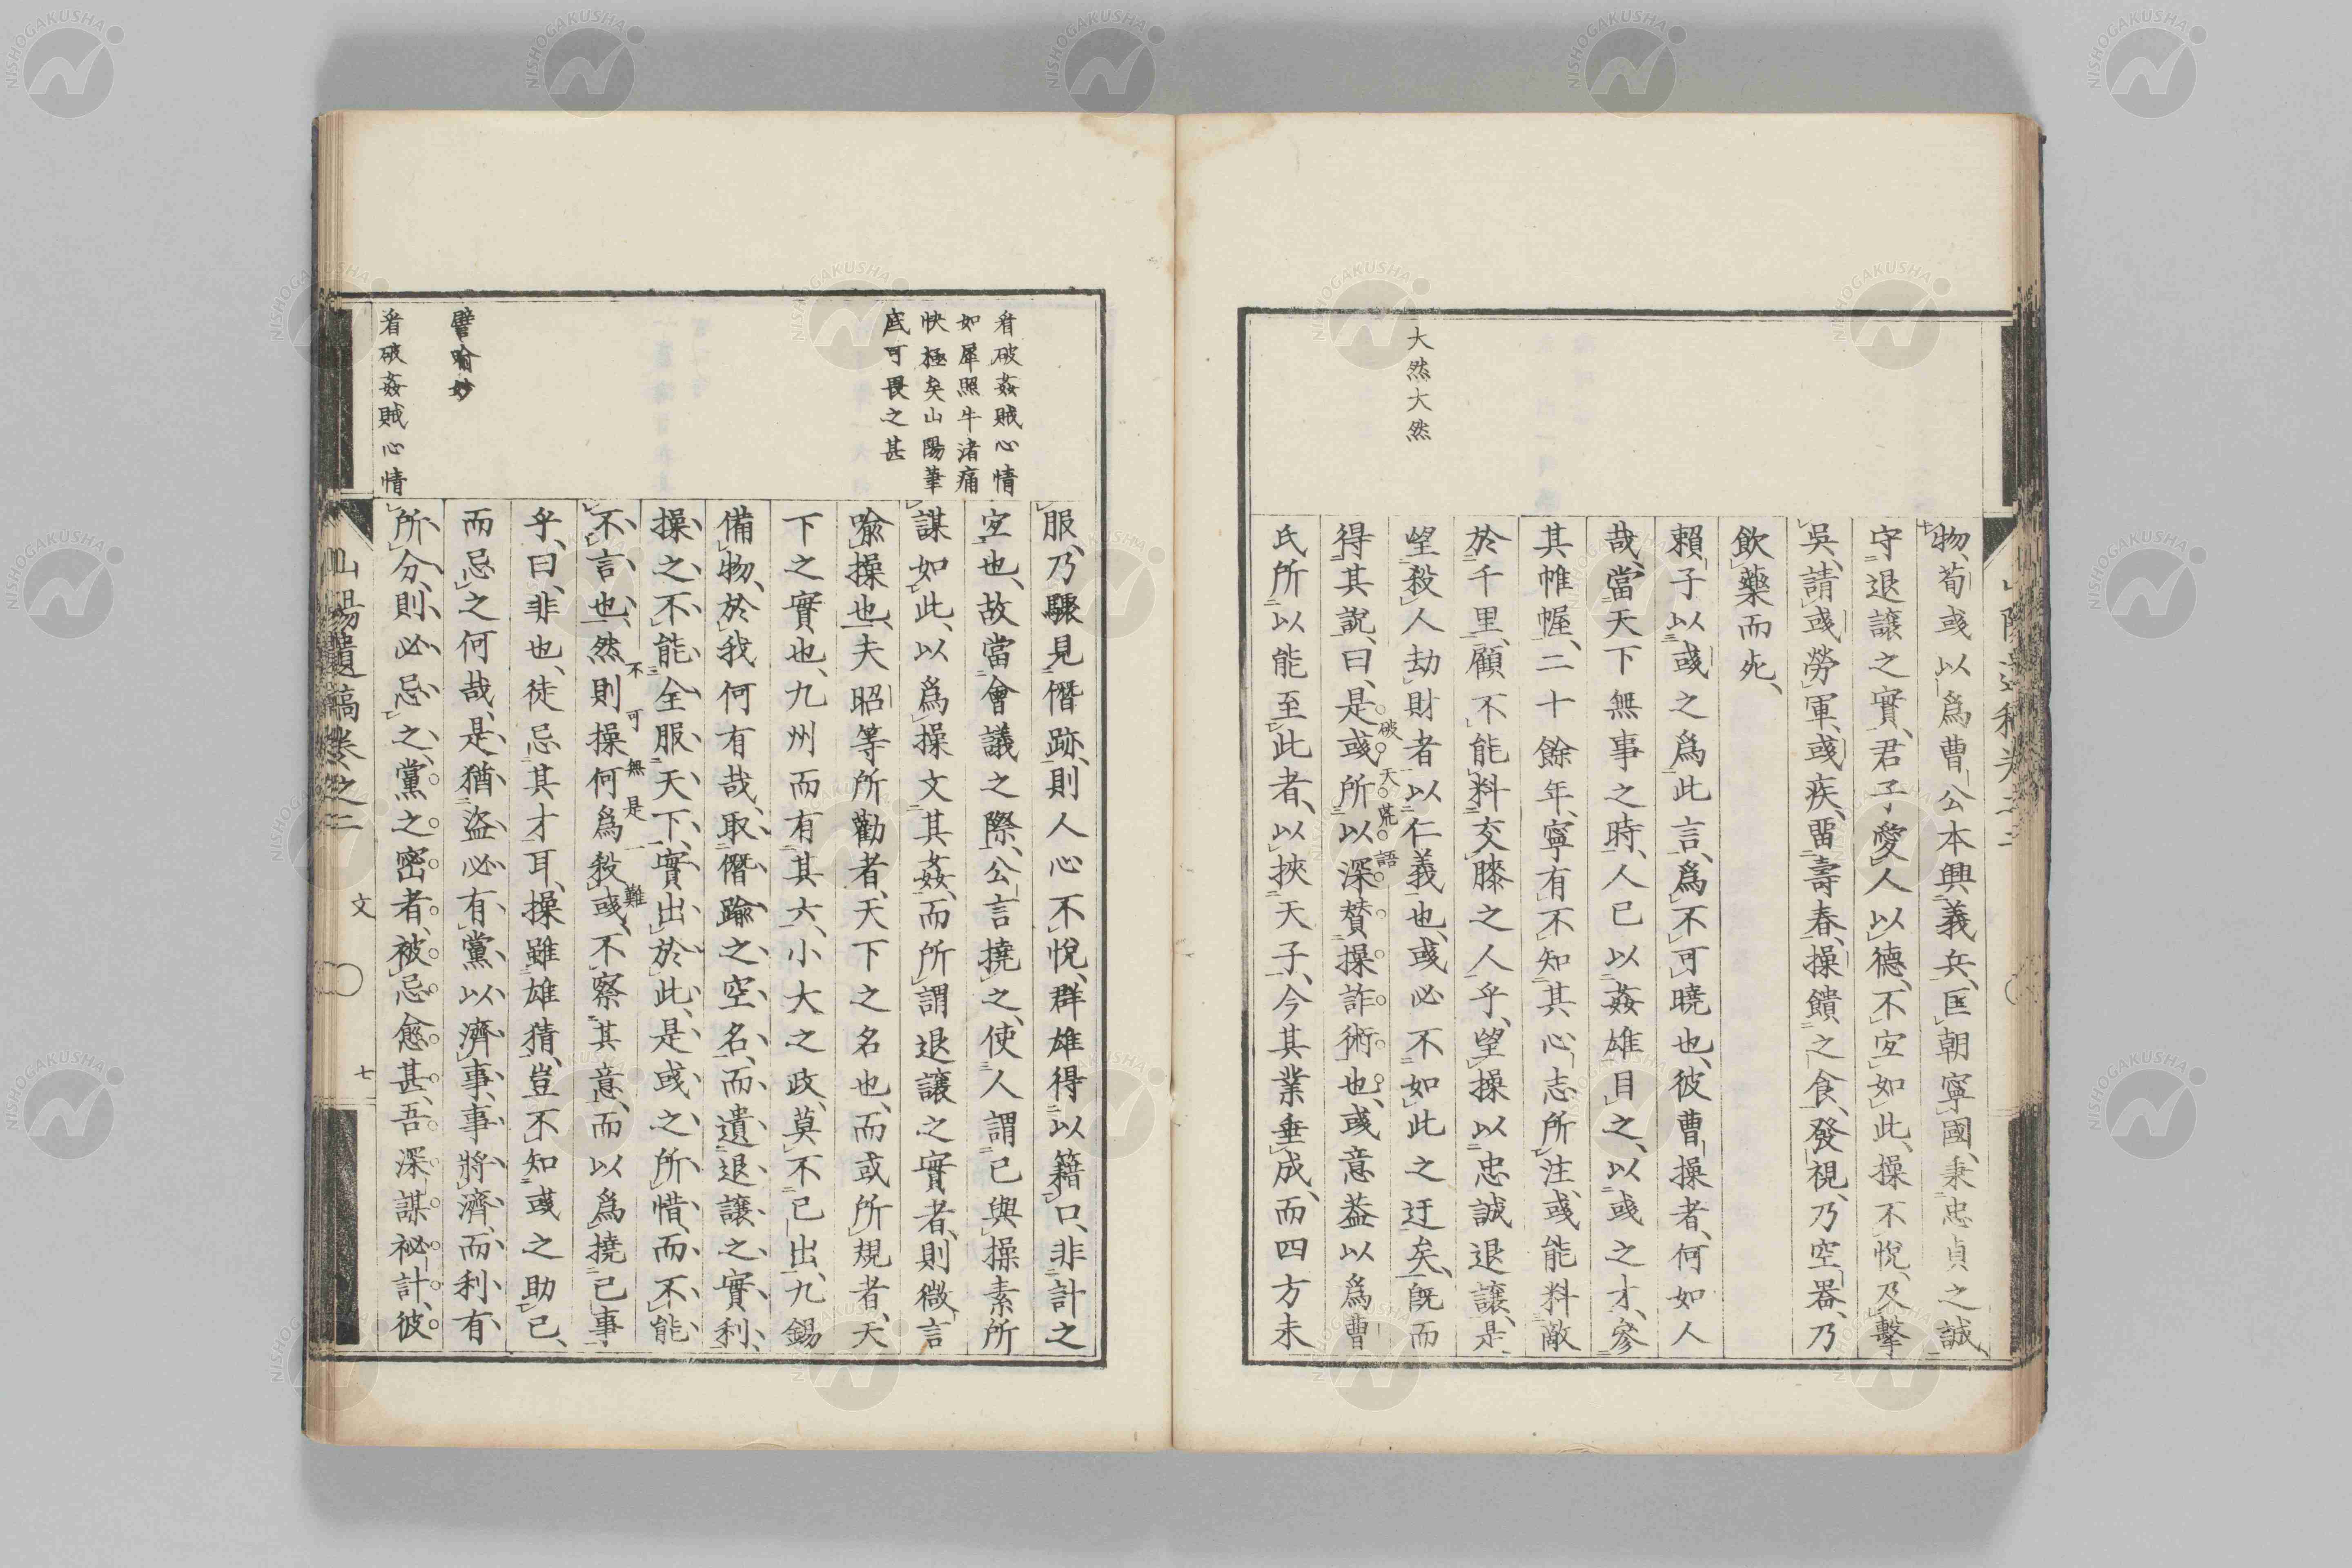 大然大然
物、荀彧以爲曹公本興義兵、匡朝寧國、秉忠貞之誠
守退讓之實、君子愛人以德、不宜如此、操不悅、及擊
吳、請彧勞軍、彧疾、畱壽春、操饋之食、發視、乃空器、乃
飲藥而死、
賴子以彧之爲此言、爲不可曉也、彼曹操者、何如人
哉、當天下無事之時、人已以姦雄目之、以彧之才、參
其帷幄、二十餘年、寧有不知其心志所注、彧能料敵
於千里、顧不能料交膝之人乎、望操以忠誠退讓、是
望殺人劫財者以仁義也、彧必不如此之迂矣、旣而
得其說、曰、是彧所以深贊操詐術也、彧意葢以爲曹
破天荒語
氏所以能至此者、以挾天子、今其業垂成、而四方未
看破姦賊心情
如犀照牛渚痛
快極矣山陽筆
底可畏之甚
譬喻妙
看破姦賊心情
服、乃驟見僭跡、則人心不悅、群雄得以籍口、非計之
宜也、故當會議之際、公言撓之、使人謂已與操素所
謀如此、以爲操文其姦、而所謂退讓之實者、則微言
喩操也、夫昭等所勸者、天下之名也、而或所規者、天
下之實也、九州而有其六、小大之政、莫不已出、九錫
備物、於我何有哉、取僭踰之空名、而遺退讓之實利、
操之不能全服天下、實出於此、是彧之所惜、而不能
不言也、然則操何爲殺彧、不察其意、而以爲撓己事
不可無是難
乎、曰、非也、徒忌其才耳、操雖雄猜、豈不知彧之助己、
而忌之何哉、是猶盜必有黨以濟事、事將濟、而利有
所分、則必忌之、黨之密者、被忌愈甚、吾深謀祕計、彼
山陽遺稿卷之二 文 七